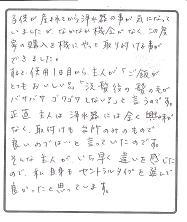 子供が産まれてから浄水器の事が気になって
いましたが、なかなか機会がなく、この度
家の購入を機にやっと取り付ける事が
できました。
私も、使用1日目から主人が「ご飯が
とてもおいしい。」「洗髪後の髪の毛が
パサパサ ゴワゴワしない。」と言うのです。
正直 主人は浄水器には全く興味が
なく、取付けも台所のみのもので
良いのでは…と言っていたのです。
そんな主人がいち早く違いを感じた
ので、私自身もセントラルタイプを選んで
良かったと思っています。